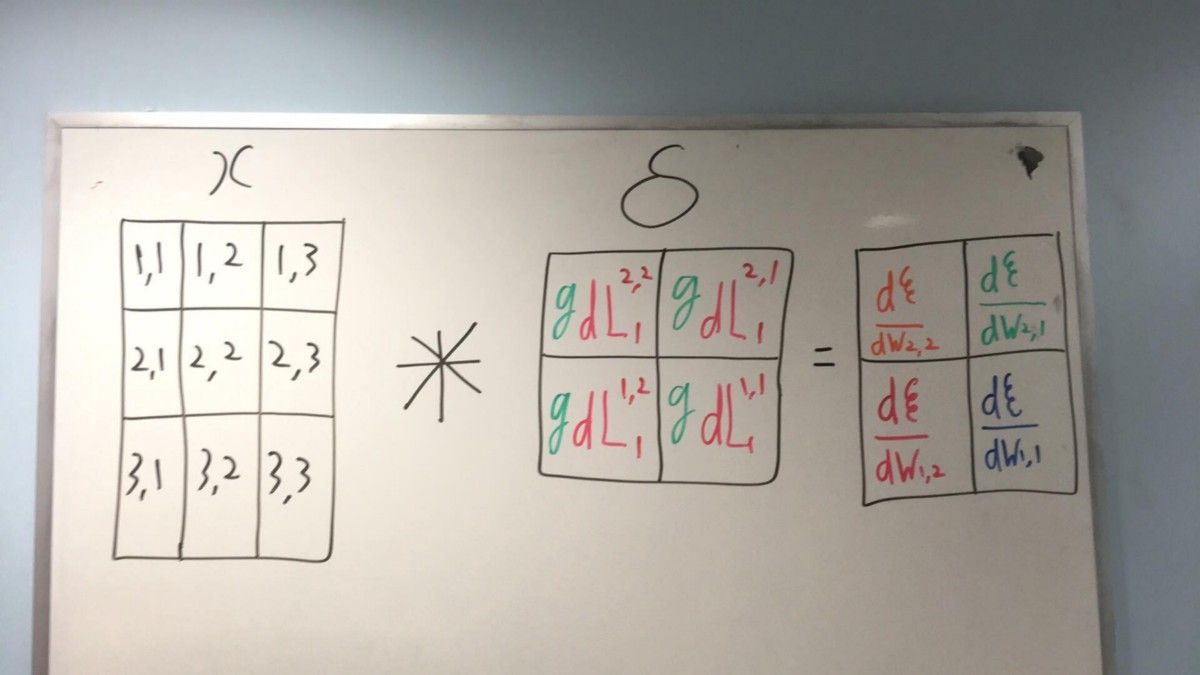 x δ
1,1 1,2 1,3
2,1 2,2 2,3
3,1 3,2 3,3
*
gdL₁²,² gdL₁²,¹
gdL₁¹,² gdL₁¹,¹
=
dε/dW₂,₂ dε/dW₂,₁
dε/dW₁,₂ dε/dW₁,₁